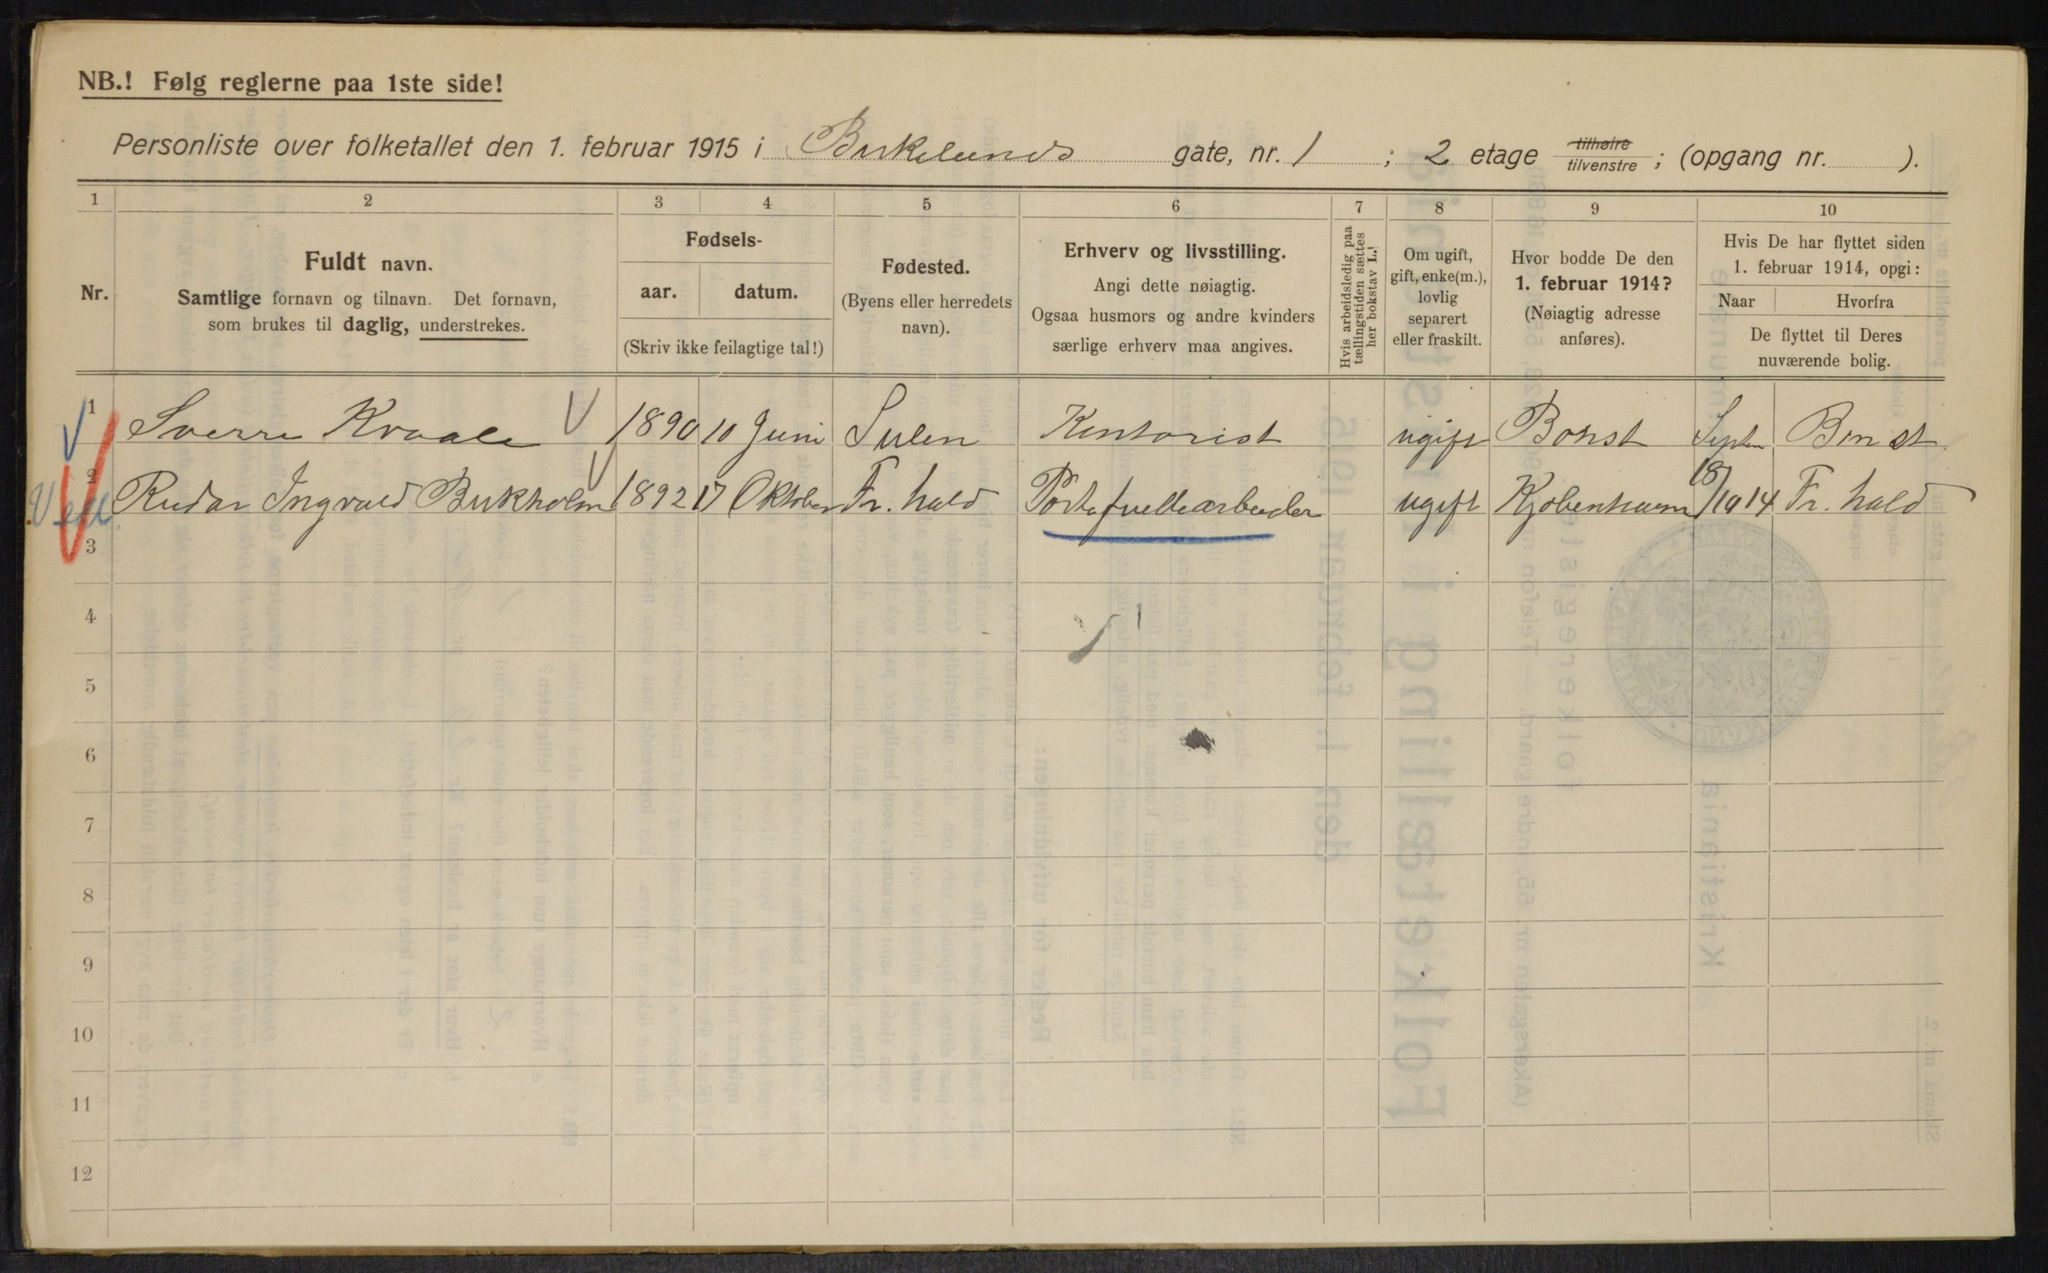 NB.! Følg reglerne paa 1ste side!
Personliste over folketallet den 1. februar 1915 i Birkelunds gate, nr. 1 ; 2 etage tilhøire tilvenstre ; (opgang nr. ).
1 2 3 4 5 6 7 8 9 10
Nr.
Fuldt navn.
Samtlige fornavn og tilnavn. Det fornavn,
som brukes til daglig, understrekes.
Fødsels-
aar. datum.
(Skriv ikke feilagtige tal!)
Fødested.
(Byens eller herredets
navn).
Erhverv og livsstilling.
Angi dette nøiagtig.
Ogsaa husmors og andre kvinders
særlige erhverv maa angives.
Hvis arbeidsledig paa
tællingstiden sættes
her bokstav L.!
Om ugift,
gift, enke(m.),
lovlig
separert
eller fraskilt.
Hvor bodde De den
1. februar 1914?
(Nøiagtig adresse
anføres).
Hvis De har flyttet siden
1. februar 1914, opgi:
Naar Hvorfra
De flyttet til Deres
nuværende bolig.
1 Sverre Kvaale 1890 10 Juni Sulen Kontorist ugift Septem
2 Rudar Ingvald Birkholm 1892 17 Oktober Fr. hald Portefuellearbeider ugift Kjøbenhavn 18/10 14 Fr. hald
3
4
5
6
7
8
9
10
11
12